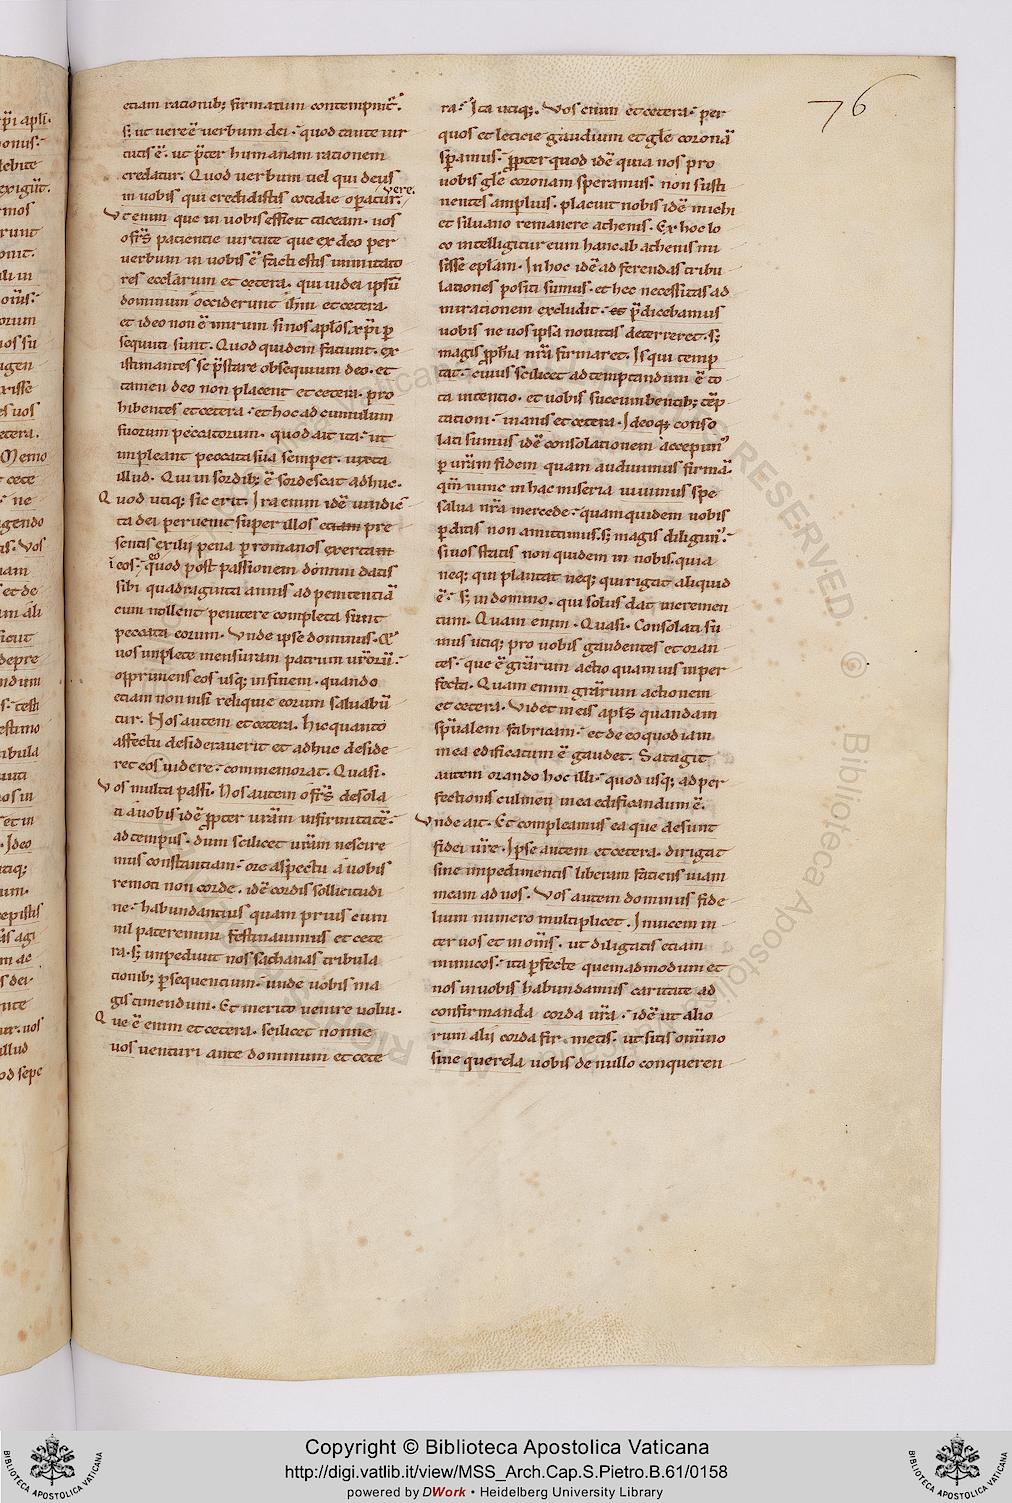 76
etiam rationib; firmatum contempnit̃.
s; ut uere ẽ uerbum dei. quod tante uir
tutis ẽ. ut p̃ter humanam rationem
credatur. Quod uerbum uel qui deus
in uobis qui credidistis cotidie op̱atur. uere.
Vt enim que in uobis effecit taceam. uos
ofr̃s patientie uirtute que ex deo per
uerbum in uobis ẽ facti estis immitato
res ecclarum et cetera. qui iudei ipsũ
dominum occiderunt ih̃m et cetera.
et ideo non ẽ mirum si nos aplõs xp̃i p̱
sequuti sunt. Quod quidem faciunt. ex
istimantes se p̃stare obsequium deo. et
tamen deo non placent et cetera. pro
hibentes et cetera. et hoc ad cumulum
suorum peccatorum. quod ait ita. ut
impleant peccata sua semper. iuxta
illud. Qui in sordib; ẽ sordescat adhuc.
Quod utiq; sic erit. Ira enim idẽ uindic̃
ta dei peruenit super illos etiam pre
sentis exilii pena p̱ romanos exertam
ĩ eos. eo quod post passionem domini datis
sibi quadraginta annis ad penitentiã
cum nollent penitere completa sunt
peccata eorum. Vnde ipse dominus. Et
uos implete mensuram patrum ur̃orũ.
opprimens eos usq; in finem. quando
etiam non nisi reliquie eorum saluabũ
tur. Nos autem et cetera. hic quanto
affectu desiderauerit et adhuc deside
ret eos uidere. commemorat. Quasi.
Vos multa passi. Nos autem ofr̃s desola
ti a uobis idẽ p̱pter ur̃am infirmitatẽ.
ad tempus. dum scilicet ur̃am nescire
mus constantiam. ore aspectu a uobis
remoti non corde. idẽ cordis sollicitudi
ne. habundantius quam prius cum
nil pateremini festinauimus et cete
ra. s; impediuit nos sathanas tribula
tionib; p̱sequentium. unde uobis ma
gis timendum. Et merito uenire uolui.
Que ẽ enim et cetera. scilicet nonne
uos uenturi ante dominum et cete
ra. Ita utiq;. Vos enim et cetera. per
quos et leticie gaudium et gl̃e coronã
sp̱amus. p̱pter quod idẽ quia nos pro
uobis gl̃e coronam speramus. non susti
nentes amplius. placuit nobis idẽ michi
et siluano remanere athenis. Ex hoc lo
co intelligitur eum hanc ab athenis mi
sisse epl̃am. In hoc idẽ ad ferendas tribu
lationes positi sumus. et hec necessitas ad
mirationem excludit. et p̃dicebamus
uobis ne uos ipsa nouitas deterreret. s;
magis p̱ph̃ia nr̃a firmaret. Is qui temp
tat. cuius scilicet ad temptandum ẽ to
ta intentio. et uobis succumbentib; tẽp
tationi. inanis et cetera. Ideoq; conso
lati sumus idẽ consolationem accepim᷒
p̱ ur̃am fidem quam audiuimus firmã.
qm̃ nunc in hac miseria uiuimus spe
salua nr̃a mercede. quam quidem uobis
p̱ditis non amittimus. s; magis diligim᷒.
si uos statis non quidem in nobis. quia
neq; qui plantat neq; qui rigat aliquid
ẽ. s; in domino. qui solus dat incremen
tum. Quam enim. Quasi. Consolati su
mus utiq; pro uobis gaudentes et oran
tes. que ẽ gr̃arum actio quamuis inper
fecta. Quam enim gr̃arum actionem
et cetera. Videt in eis apl̃s quandam
sp̃ualem fabricam. et de eo quod iam
in ea edificatum ẽ gaudet. Satagit
autem orando hoc illi. quod usq; ad per
fectionis culmen in ea edificandum ẽ.
Vnde ait. Et compleamus ea que desunt
fidei ur̃e. Ipse autem et cetera. dirigat
sine impedimentis liberam faciens uiam
meam ad uos. Vos autem dominus fide
lium numero multiplicet. Inuicem in
ter uos et in om̃s. ut diligatis etiam
inimicos. ita p̱fecte quemadmodum et
nos in uobis habundamus caritate ad
confirmanda corda ur̃a. idẽ ut alio
rum alii corda firmetis. ut sitis om̃ino
sine querela uobis de nullo conqueren
Copyright © Biblioteca Apostolica Vaticana
http://digi.vatlib.it/view/MSS_Arch.Cap.S.Pietro.B.61/0158
powered by DWork • Heidelberg University Library
BIBLIOTECA APOSTOLICA VATICANA
BIBLIOTECA APOSTOLICA VATICANA